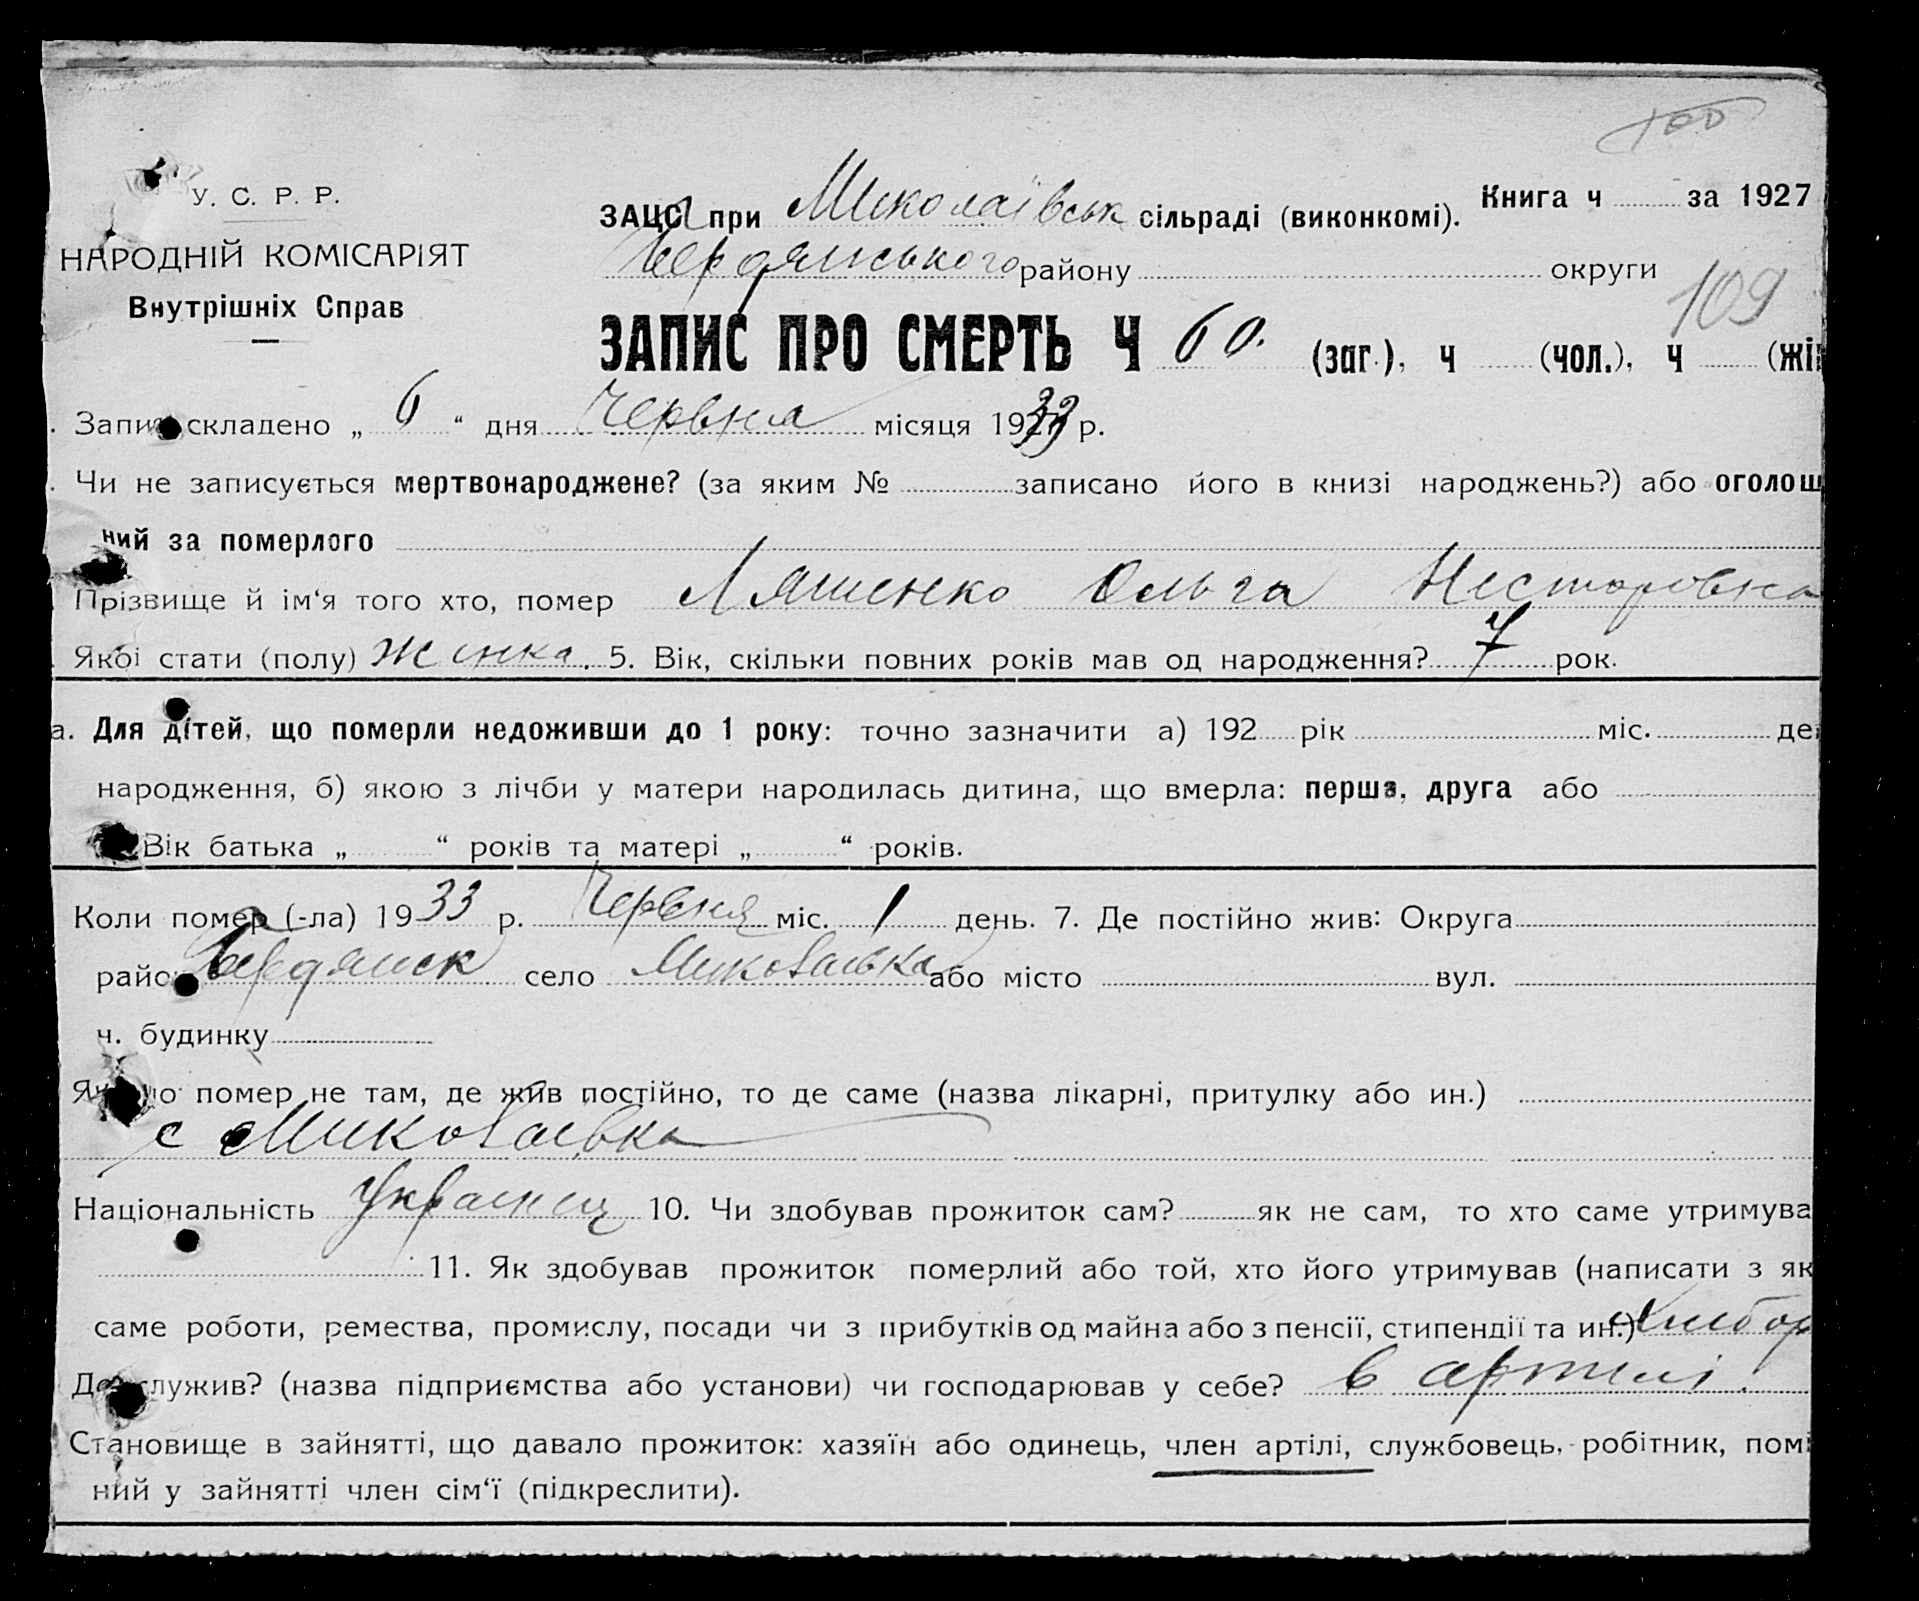 100
У. С. Р. Р.
НАРОДНІЙ КОМІСАРІЯТ
Внутрішніх Справ
ЗАЦС при Миколаївськ сільраді (виконкомі). Книга ч за 1927
Бердянського району округи
109
ЗАПИС ПРО СМЕРТЬ Ч 60. (заг.), ч (чол.), ч (жін
Запис складено „ 6 “ дня Червня місяця 1933 р.
Чи не записується мертвонароджене? (за яким № записано його в книзі народжень?) або оголош
ний за померлого
Прізвище й ім‘я того хто, помер Ляшенко Ольга Несторовна
Якої стати (полу) жінка. 5. Вік, скільки повних років мав од народження? 7 рок.
а. Для дітей, що померли недоживши до 1 року: точно зазначити а) 192 рік міс. ден
народження, б) якою з лічби у матери народилась дитина, що вмерла: перша, друга або
Вік батька „ “ років та матері „ “ років.
Коли помер (-ла) 1933 р. Червня міс. 1 день. 7. Де постійно жив: Округа
район Бердянск село Миколаївка або місто вул.
ч. будинку
Якщо помер не там, де жив постійно, то де саме (назва лікарні, притулку або ин.)
с Миколаївка
Національність Українец 10. Чи здобував прожиток сам? як не сам, то хто саме утримува
11. Як здобував прожиток померлий або той, хто його утримував (написати з як
саме роботи, ремества, промислу, посади чи з прибутків од майна або з пенсії, стипендії та ин.) Хлібор
Де служив? (назва підприємства або установи) чи господарював у себе? в артилі.
Становище в зайнятті, що давало прожиток: хазяїн або одинець, член артілі, службовець, робітник, помі
ний у зайнятті член сім‘ї (підкреслити).